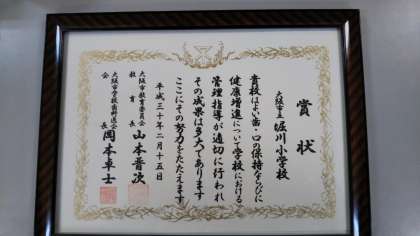 賞状
大阪市立 堀川小学校
貴校はよい歯・口の保持ならびに
健康増進について学校における
管理指導が適切に行われ
その成果は多大であります
ここにその努力をたたえます
平成三十年二月十五日
大阪市教育委員会
教育長 山本晋次
大阪市学校歯科医会
会長 岡本卓士